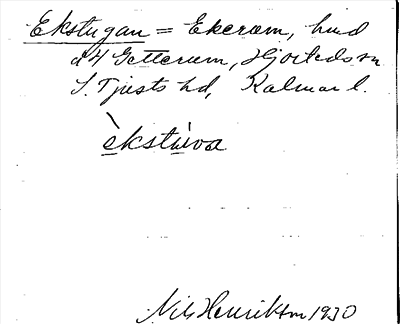 Ekstugan = Ekeram, hus
å 4 Getterum, Hjorteds sn
S. Tjusts hd, Kalmar l.
èkstùva
Nils Henrikson 1930